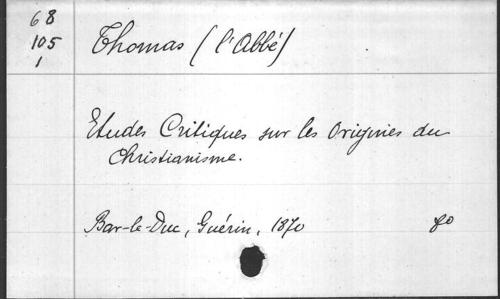 68
105
1
Thomas (l'Abbé)
Etudes Critiques sur les Origines du
Christianisme.
Bar-le-Duc, Guérin, 1870 8o